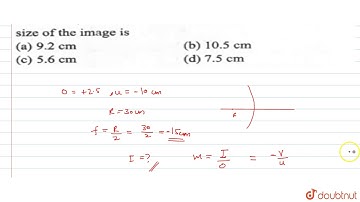 size of the image is
(a) 9.2 cm (b) 10.5 cm
(c) 5.6 cm (d) 7.5 cm
O = +2.5 , u = -10 cm
R = 30 cm
f = R/2 = 30/2 = -15cm
I = ? m = I/O = -v/u
doubtnut